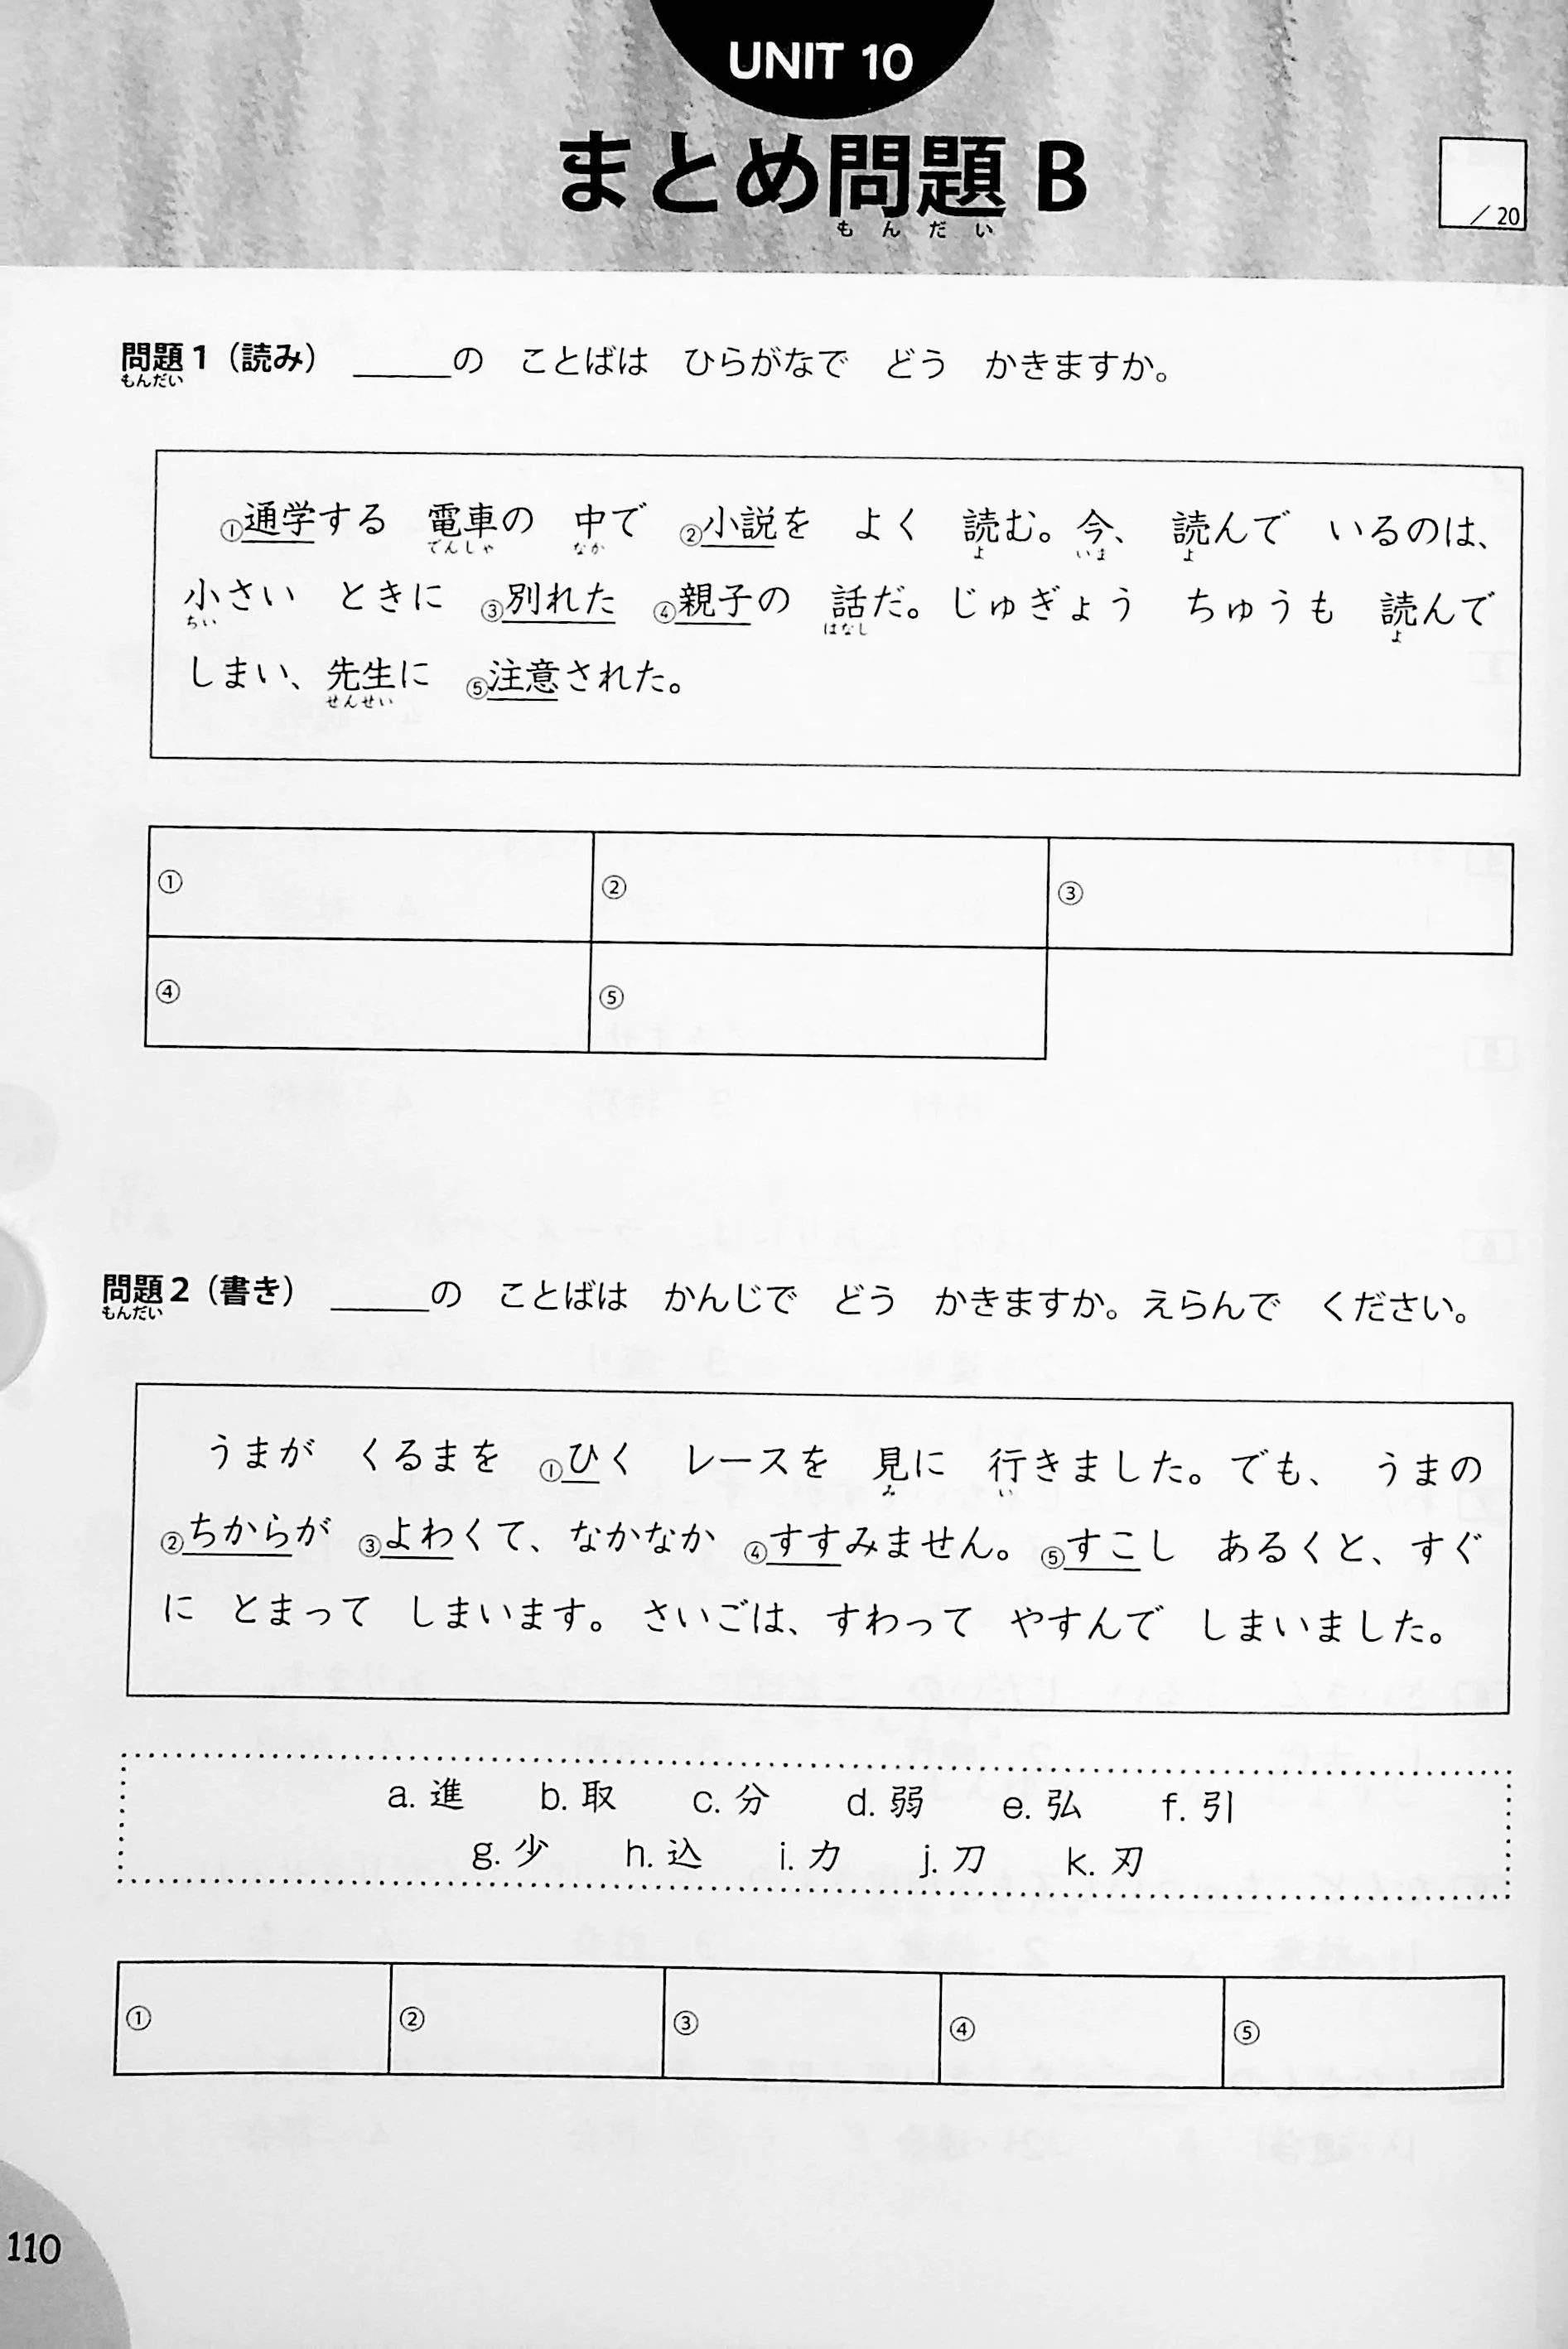 UNIT 10
まとめ問題 B
もんだい
／20
問題1（読み） ＿＿＿の ことばは ひらがなで どう かきますか。
もんだい
①通学する 電車の 中で ②小説を よく 読む。今、 読んで いるのは、
でんしゃ なか よ いま よ
小さい ときに ③別れた ④親子の 話だ。じゅぎょう ちゅうも 読んで
ちい はなし よ
しまい、先生に ⑤注意された。
せんせい
① ② ③
④ ⑤
問題2（書き） ＿＿＿の ことばは かんじで どう かきますか。えらんで ください。
もんだい
うまが くるまを ①ひく レースを 見に 行きました。でも、 うまの
み い
②ちからが ③よわくて、なかなか ④すすみません。⑤すこし あるくと、すぐ
に とまって しまいます。さいごは、すわって やすんで しまいました。
a. 進 b. 取 c. 分 d. 弱 e. 弘 f. 引
g. 少 h. 込 i. 力 j. 刀 k. 刃
① ② ③ ④ ⑤
110